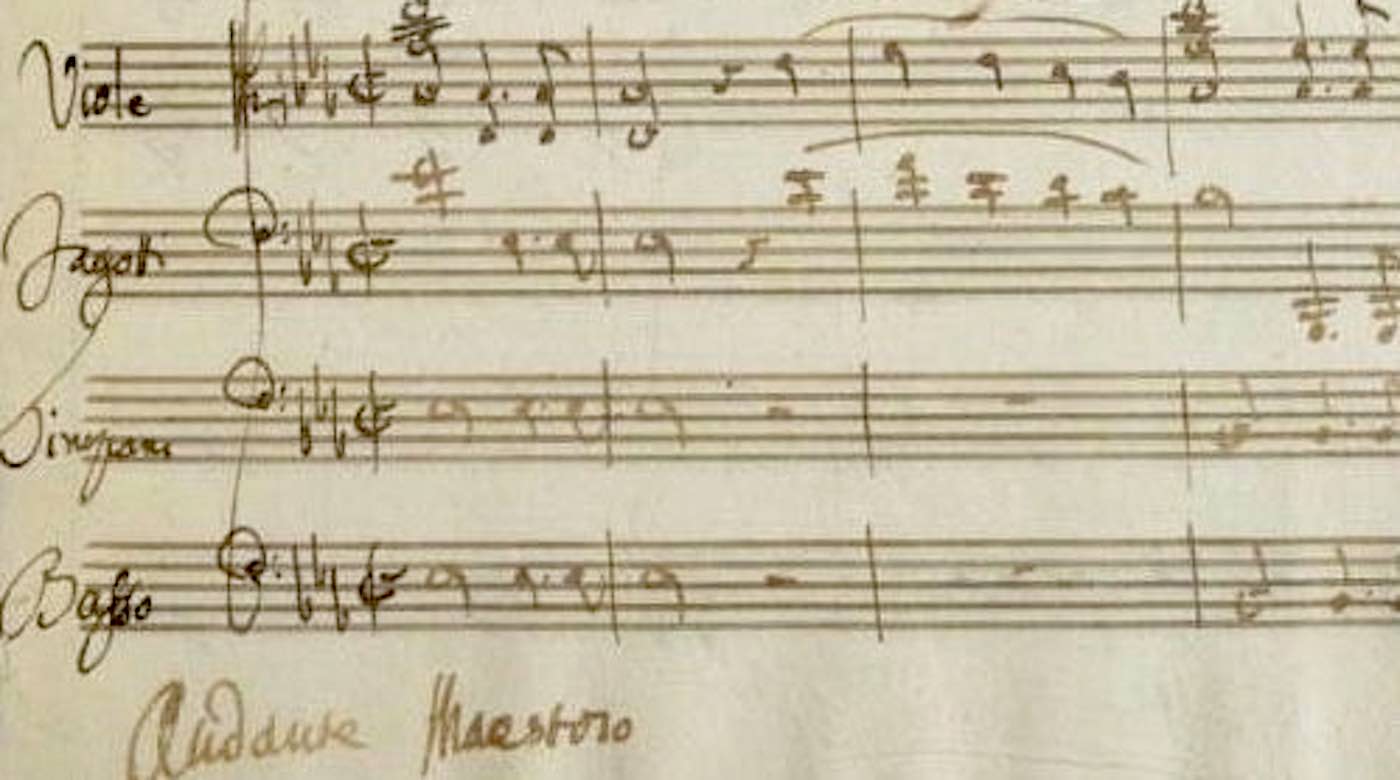 Viole
Fagoti
Timpani
Basso
Andante Maestoso